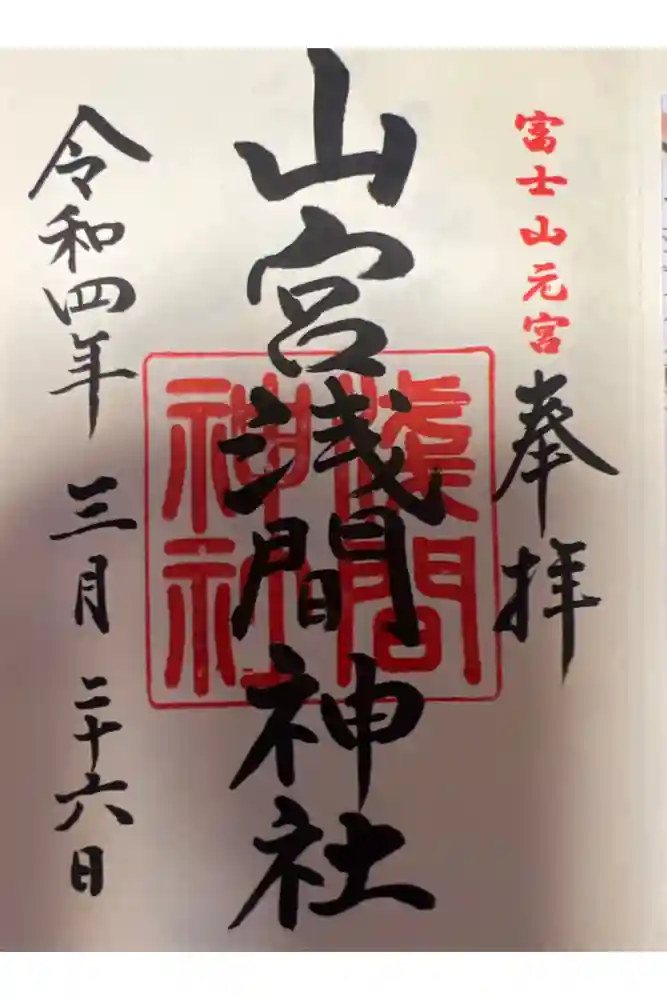 富士山元宮
奉拝
山宮浅間神社
浅間
神社
令和四年 三月 二十六日